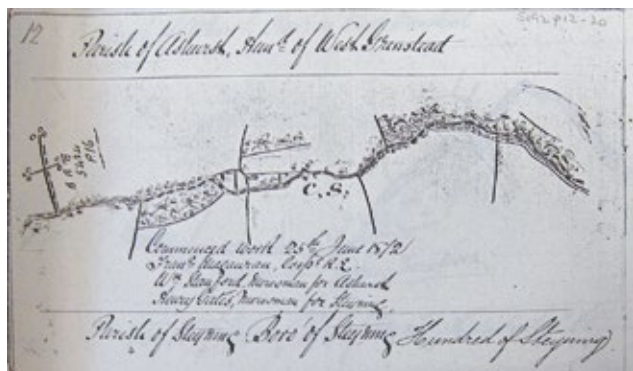 12
Parish of Ashurst, Hundd. of West Grinstead
C.S.
Commenced Work 25th June 1872
Corpl. R.E.
Wm. Stanford, Meresman for Ashurst
Henry Gates, Meresman for Steyning
Parish of Steyning Boro' of Steyning Hundred of Steyning